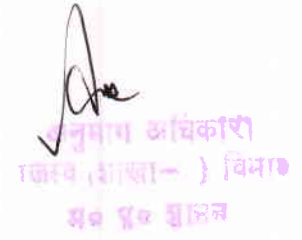 अनुभाग अधिकारी
राजस्व (शाखा- ) विभाग
म० प्र० शासन